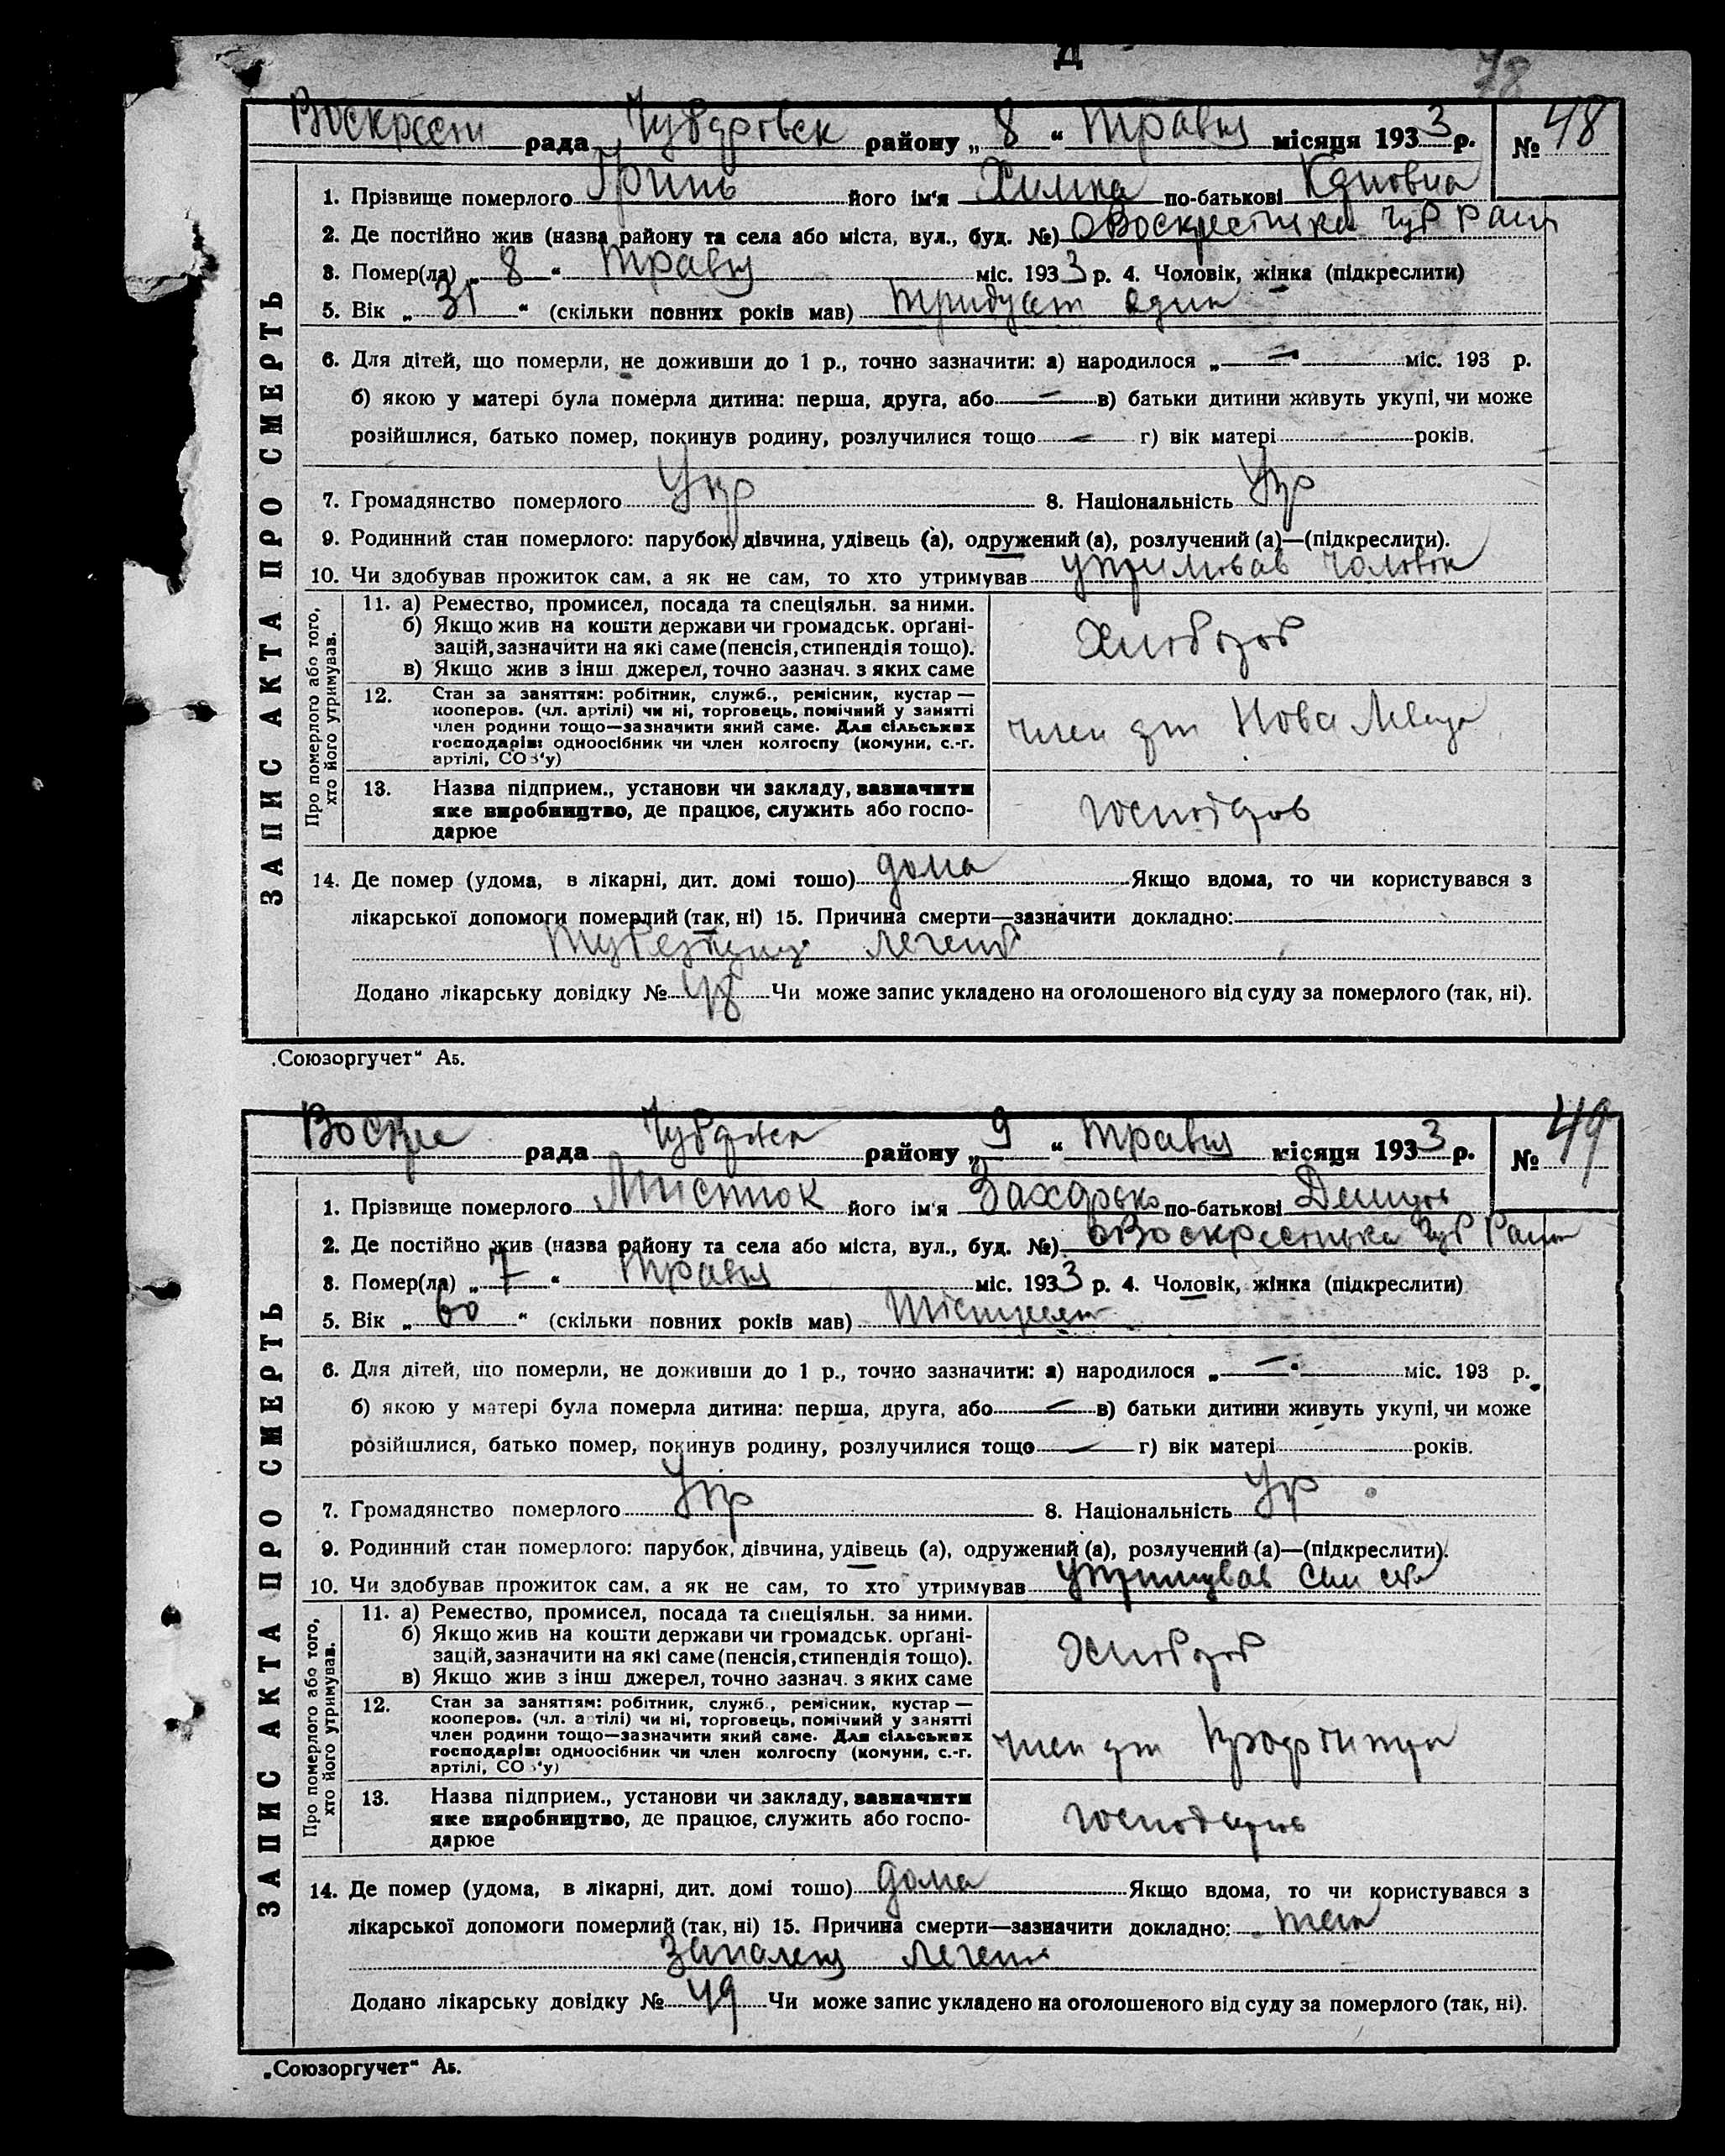 Д
78
Воскресен рада Чубаровск району „ 8 “ травня місяця 1933 р. № 48
ЗАПИС АКТА ПРО СМЕРТЬ
1. Прізвище померлого Гринь його ім'я Химка по-батькові
2. Де постійно жив (назва району та села або міста, вул., буд. №) Чуб Раш
3. Помер(ла) „ 8 “ травня міс. 1933 р. 4. Чоловік, жінка (підкреслити)
5. Вік „ 31 “ (скільки повних років мав) тридцят один
6. Для дітей, що померли, не доживши до 1 р., точно зазначити: а) народилося „ — “ міс. 193 р.
б) якою у матері була померла дитина: перша, друга, або — в) батьки дитини живуть укупі, чи може
розійшлися, батько помер, покинув родину, розлучилися тощо — г) вік матері років.
7. Громадянство померлого Укр 8. Національність Укр
9. Родинний стан померлого: парубок, дівчина, удівець (а), одружений (а), розлучений (а)—(підкреслити).
10. Чи здобував прожиток сам, а як не сам, то хто утримував утримовав чоловік
Про померлого або того, хто його утримував.
11. а) Ремество, промисел, посада та спеціяльн. за ними.
б) Якщо жив на кошти держави чи громадськ. орґані-
зацій, зазначити на які саме (пенсія, стипендія тощо).
в) Якщо жив з інш джерел, точно зазнач. з яких саме
Хлібороб
12. Стан за заняттям: робітник, служб., ремісник, кустар —
кооперов. (чл. артілі) чи ні, торговець, помічний у занятті
член родини тощо—зазначити який саме. Для сільських
господарів: одноосібник чи член колгоспу (комуни, с.-г.
артілі, СОЗ'у)
член арт Нова
13. Назва підприєм., установи чи закладу, зазначити
яке виробництво, де працює, служить або госпо-
дарює
14. Де помер (удома, в лікарні, дит. домі тошо) дома Якщо вдома, то чи користувався з
лікарської допомоги померлий (так, ні) 15. Причина смерти—зазначити докладно:
туберкульоз легенів
Додано лікарську довідку № 48 Чи може запис укладено на оголошеного від суду за померлого (так, ні).
„Союзоргучет“ А5.
Воскре рада району „ 9 “ травня місяця 1933 р. № 49
ЗАПИС АКТА ПРО СМЕРТЬ
1. Прізвище померлого його ім'я Захарько по-батькові
2. Де постійно жив (назва району та села або міста, вул., буд. №) Чуб
3. Помер(ла) „ 7 “ травня міс. 1933 р. 4. Чоловік, жінка (підкреслити)
5. Вік „ 60 “ (скільки повних років мав)
6. Для дітей, що померли, не доживши до 1 р., точно зазначити: а) народилося „ — “ міс. 193 р.
б) якою у матері була померла дитина: перша, друга, або — в) батьки дитини живуть укупі, чи може
розійшлися, батько помер, покинув родину, розлучилися тощо — г) вік матері років.
7. Громадянство померлого Укр 8. Національність Укр
9. Родинний стан померлого: парубок, дівчина, удівець (а), одружений (а), розлучений (а)—(підкреслити).
10. Чи здобував прожиток сам, а як не сам, то хто утримував утримував сам себе
Про померлого або того, хто його утримував.
11. а) Ремество, промисел, посада та спеціяльн. за ними.
б) Якщо жив на кошти держави чи громадськ. орґані-
зацій, зазначити на які саме (пенсія, стипендія тощо).
в) Якщо жив з інш джерел, точно зазнач. з яких саме
Хлібороб
12. Стан за заняттям: робітник, служб., ремісник, кустар —
кооперов. (чл. артілі) чи ні, торговець, помічний у занятті
член родини тощо—зазначити який саме. Для сільських
господарів: одноосібник чи член колгоспу (комуни, с.-г.
артілі, СОЗ'у)
член арт Профінтерн
13. Назва підприєм., установи чи закладу, зазначити
яке виробництво, де працює, служить або госпо-
дарює
14. Де помер (удома, в лікарні, дит. домі тошо) дома Якщо вдома, то чи користувався з
лікарської допомоги померлий (так, ні) 15. Причина смерти—зазначити докладно:
запаленя легенів
Додано лікарську довідку № 49 Чи може запис укладено на оголошеного від суду за померлого (так, ні).
„Союзоргучет“ А5.